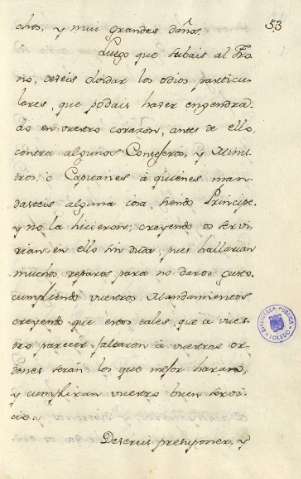 53
chos, y mui grandes daños.
Luego que subais al Tro-
no, deveis olvidar los odios particu-
lares, que podais haver engendra-
do en vuestro corazon, antes de ello,
contra algunos Consejeros, y Minis-
tros, o Capitanes à quienes man-
dasteis alguna cosa, siendo Principe,
y no la hicieron, creyendo os servi-
rian en ello sin duda, pues hallarian
muchos reparos para no daros gusto
cumpliendo vuestros Mandamientos
creyendo que estos tales, que à vues-
tro parecer, faltaron à vuestras or-
denes seràn los que mejor haràn,
y cumpliràn vuestro buen servi-
cio.
BIBLIOTECA PUBLICA
TOLEDO
Deveis presuponer, y